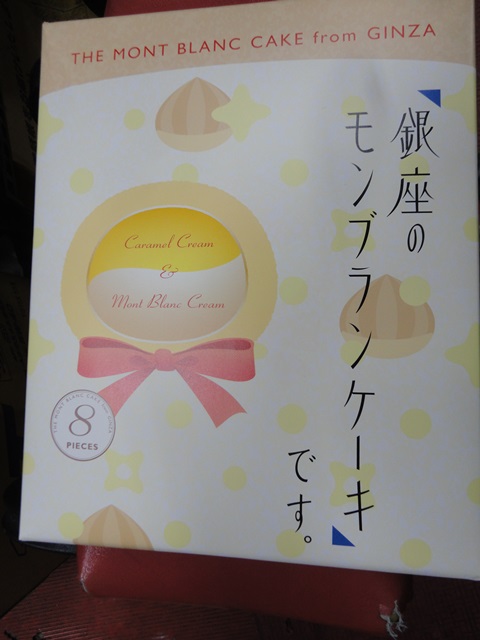 THE MONT BLANC CAKE from GINZA
「銀座の
モンブランケーキ」
です。
Caramel Cream
&
Mont Blanc Cream
THE MONT BLANC CAKE from GINZA
8
PIECES